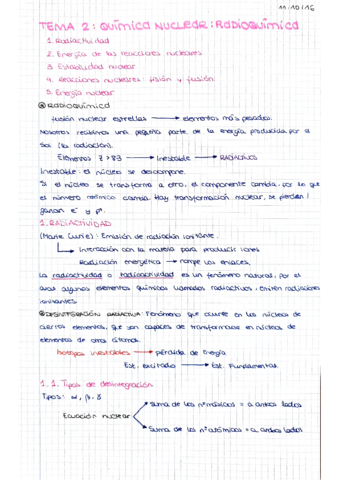 11/10/16
TEMA 2: QUÍMICA NUCLEAR: RADIOQUÍMICA
1. Radiactividad
2. Energía de las reacciones nucleares
3. Estabilidad nuclear
4. Reacciones nucleares: fisión y fusión
5. Energía nuclear
RADIOQUÍMICA
fusión nuclear estrellas → elementos más pesados.
Nosotros recibimos una pequeña parte de la energía producida por el
Sol (la radiación).
Elementos Z > 83 → Inestable → RADIACTIVOS
Inestable: el núcleo se descompone.
Si el núcleo se transforma a otro, el componente cambia, por lo que
el número atómico cambia. Hay transformación nuclear, se pierden /
ganan e⁻ y p⁺.
1. RADIACTIVIDAD
(Marie Curie): Emisión de radiación ionizante.
→ Interacción con la materia para producir iones
Radiación energética → rompe los enlaces.
La radiactividad o radioactividad es un fenómeno natural, por el
cual algunos elementos químicos llamados radiactivos, emiten radiaciones
ionizantes
DESINTEGRACIÓN RADIACTIVA: Fenómeno que ocurre en los núcleos de
ciertos elementos, que son capaces de transformarse en núcleos de
elementos de otros átomos.
Isótopos inestables → pérdida de Energía
Est. excitado → Est. Fundamental.
1.1. Tipos de desintegración
Tipos: α, β, γ
Suma de los nº másicos = a ambos lados
Ecuación nuclear
Suma de los nº atómicos = a ambos lados